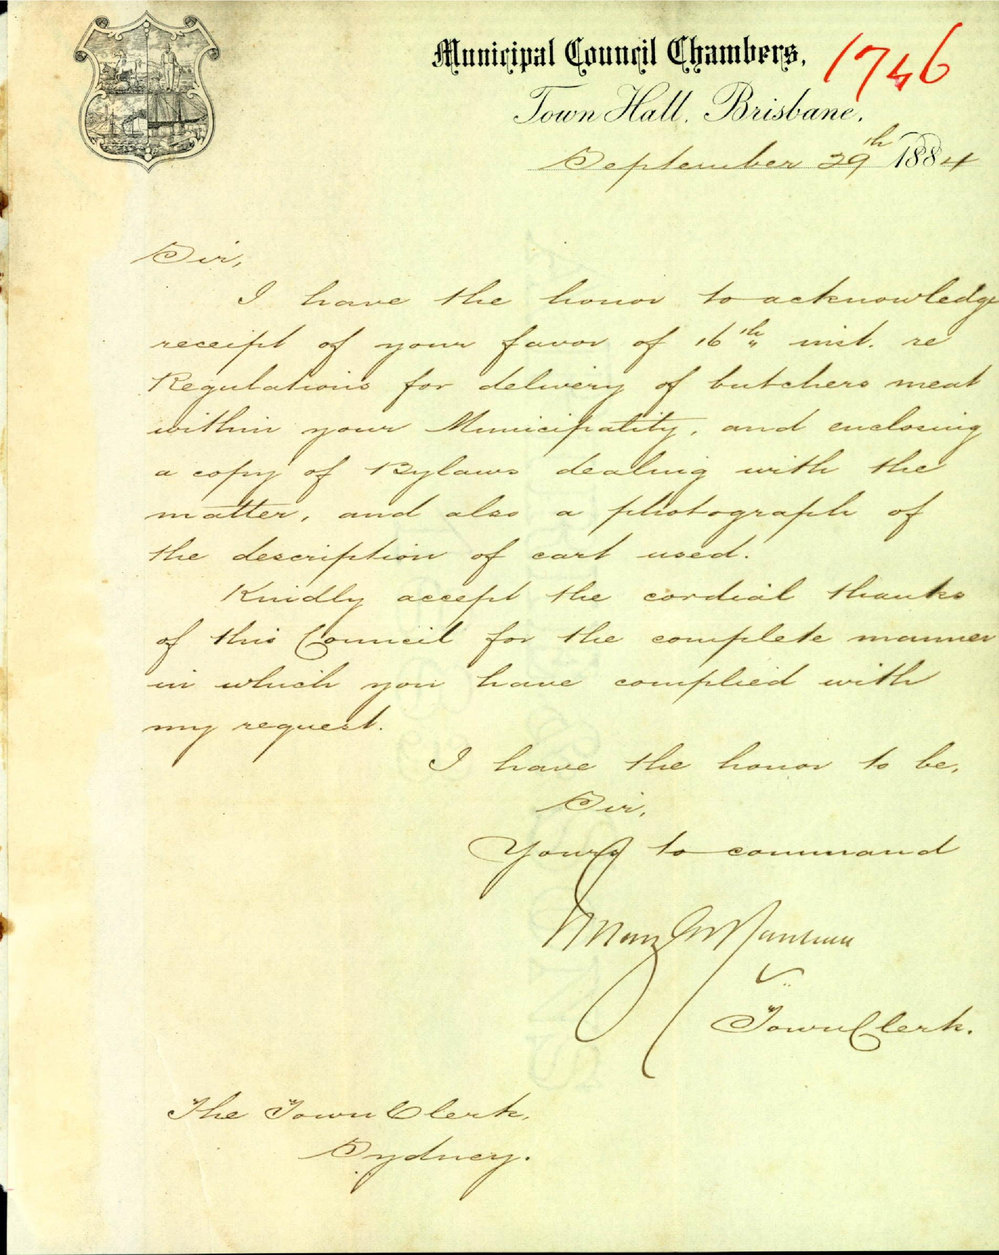 Municipal Council Chambers,
1746
Town Hall, Brisbane,
September 29th 1884
Sir,
I have the honor to acknowledge
receipt of your favor of 16th inst. re
Regulations for delivery of butchers meat
within your Municipality, and enclosing
a copy of Bylaws dealing with the
matter, and also a photograph of
the description of cart used.
Kindly accept the cordial thanks
of this Council for the complete manner
in which you have complied with
my request.
I have the honor to be,
Sir,
Yours to command
Town Clerk.
The Town Clerk,
Sydney.